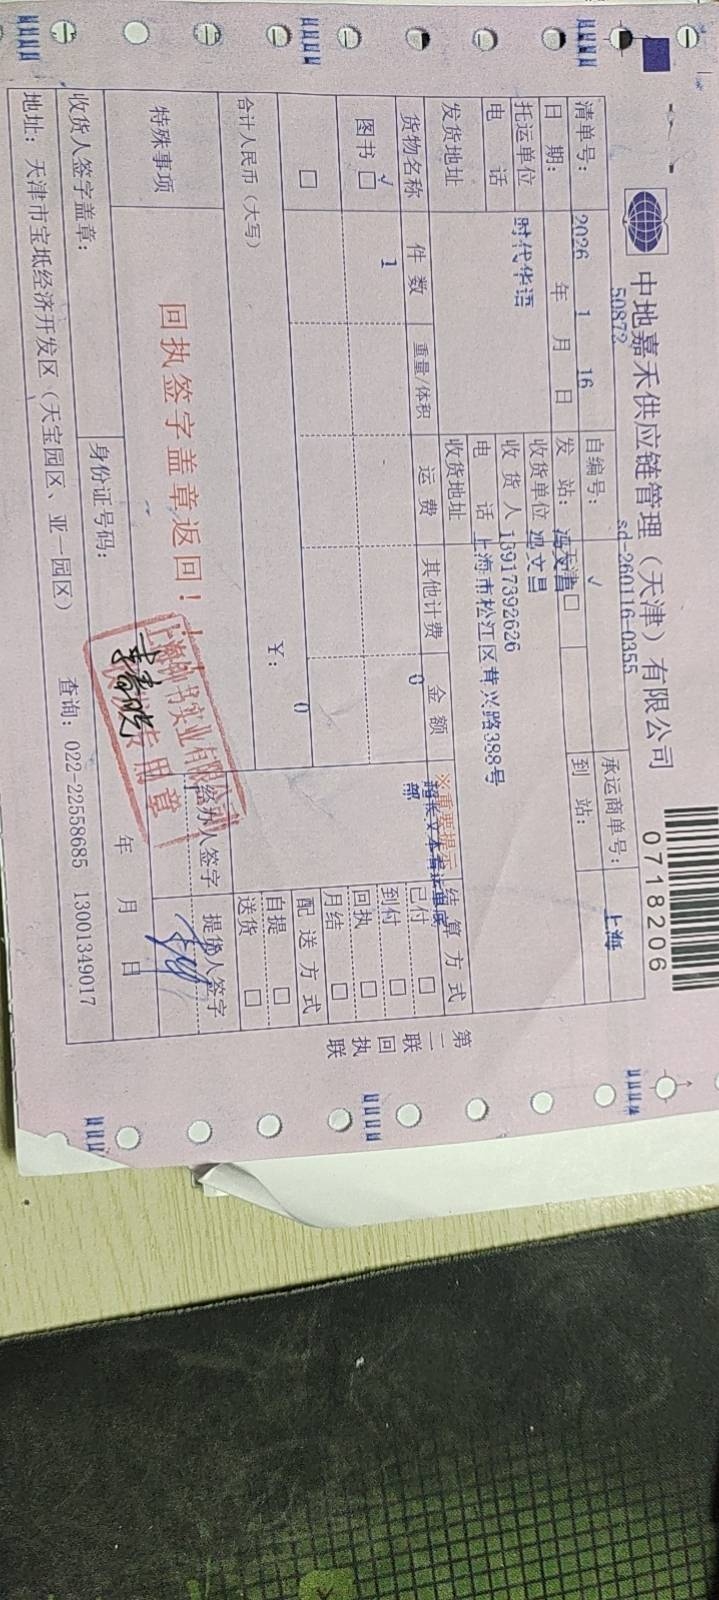 中地嘉禾供应链管理（天津）有限公司
0718206
50872
sd-260116-0355
清单号：
自编号：
√
承运商单号：
上海
日期：
2026 年 1 月 16 日
发站：
□
到站：
托运单位
时代华语
收货单位
冯文昌
电话
收货人
13917392626
发货地址
电话
收货地址
上海市松江区茸兴路388号
货物名称
件数
重量/体积
运费
其他计费
金额
0
※重要提示
结算方式
图书 □
√
1
已付 □
到付 □
回执 □
月结 □
□
配送方式
自提 □
送货 □
合计人民币（大写）
￥：
0
特殊事项
回执签字盖章返回！
经办人签字
提货人签字
收货人签字盖章：
身份证号码：
年 月 日
地址：天津市宝坻经济开发区（天宝园区、亚一园区）
查询：022-22558685 13001349017
第二联 回执联